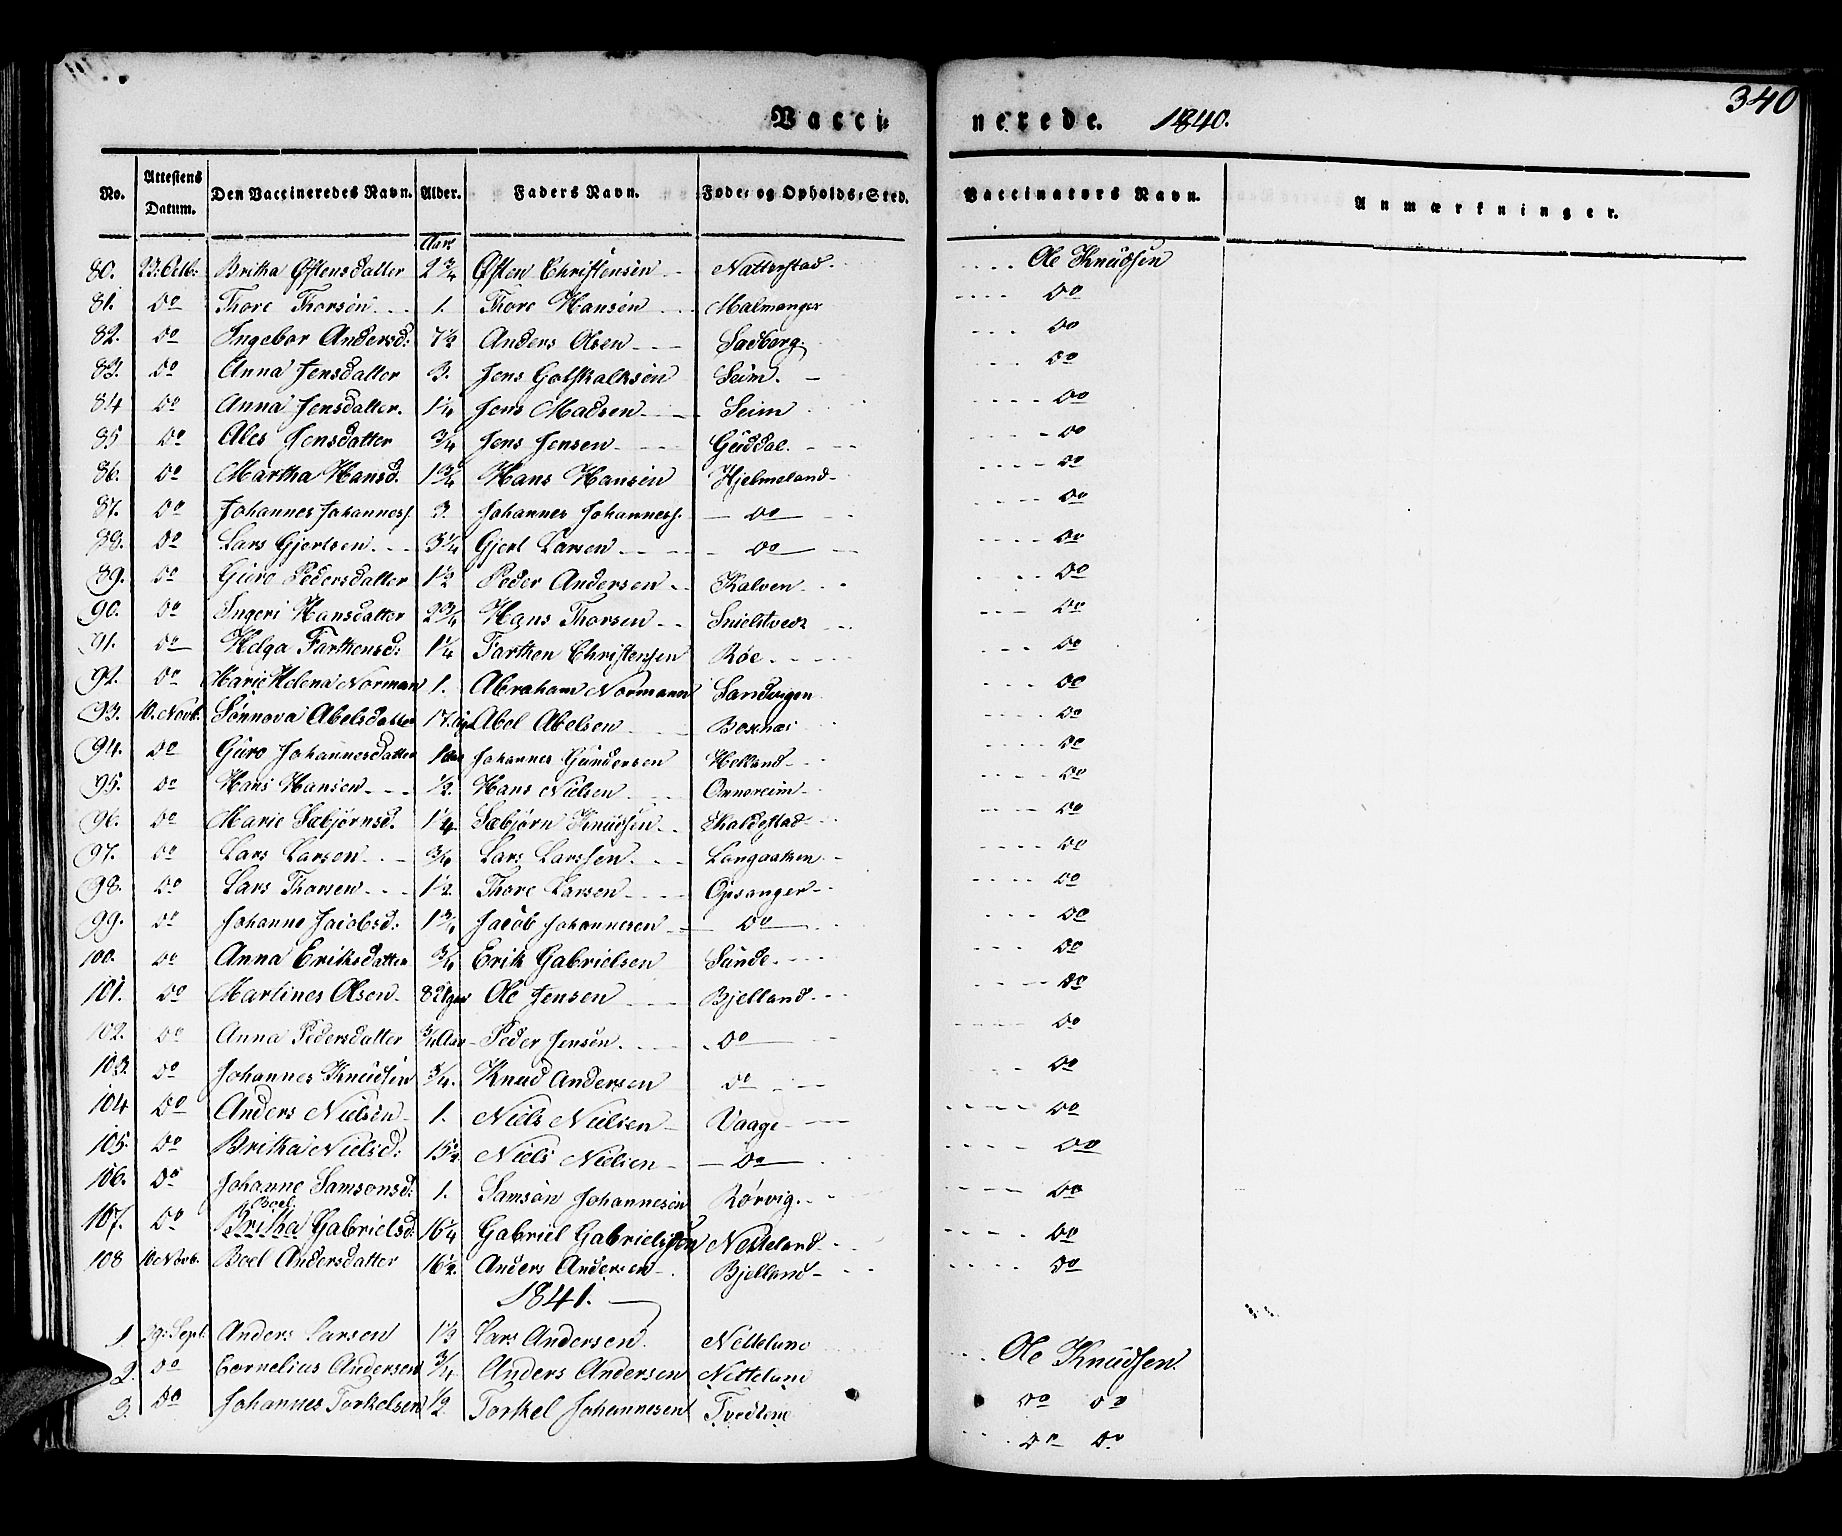 340
Vaccinerede. 1840.
No. Attestens Datum. Den Vaccineredes Navn. Alder. Faders Navn. Føde- og Opholds-Sted. Vaccinators Navn. Anmærkninger.
Aar
80. Britha Østensdatter 2 3/4 Østen Christensen Natterstad. Ole Knudsen
81. do Thore Thorsen 1. Thore Hansen Malmanger do
82. do Ingebor Andersd: 7 1/2 Anders Olsen do
83. do Anna Jensdatter 3. Jens Gotskalksen Seim. do
84 do Anna Jensdatter. 1 1/4 Jens Madsen Seim do
85 do Ales Jensdatter 3/4 Jens Jensen Guddal. do
86. do Martha Hansd. 1 3/4 Hans Hansen Hjelmeland do
87. do Johannes Johanness. 3. Johannes Johanness. do do
88. do Lars Gjertsen 3 1/4 Gjert Larsen do do
89. do Guro Pedersdatter 1 1/2 Peder Andersen Kalven do
90. do Ingeri Hansdatter 2 3/4 Hans Thorsen do
91. do Helga Tarkensd: 1 1/4 Tarken Christensen Røe do
92. do Marie Helena Norman 1. Abraham Normann Sandvigen do
93. 10. Novb. Sønnova Abelsdatter 17 Abel Abelsen do
94. do Guro Johannesdatter 1 Aar Johannes Gundersen Helland do
95. do Hans Hansen 1/2. Hans Nielsen Omnereim do
96. do Marie Sæbjørnsd. 1 1/4. Sæbjørn Knudsen do
97. do Lars Larsen 3/4 Lars Larssen. do
98. do Lars Thorsen 1 1/2. Thore Larsen Opsanger do
99. do Johanne Jacobsd: 1 3/4 Jacob Johannesen do do
100. do Anna Eriksdatter 3/4 Erik Gabrielsen Sunde. do
101. do Martines Olsen 8 Uger Ole Jensen Bjelland do
102. do Anna Pedersdatter 3/4 Aar Peder Jensen. do do
103. do Johannes Knudsen 3/4. Knud Andersen do do
104 do Anders Nielsen 1. Niels Nielsen Vaage do
105. do Britha Nielsd: Niels Nielsen do do
106. do Johanne Samsonsd: 1. Samson Johannesen Rørvig. do
Boel
107. do Britha Gabrielsd: 16 1/4 Gabriel Gabrielsen Netteland do
108 10 Novb. Boel Andersdatter 16 1/2. Anders Andersen Bjelland do
1841.
1 29. Sept. Anders Larsen 1 1/2 Lars Andersen. Netteland Ole Knudsen.
2. do Cornelius Andersen 3/4 Anders Andersen Netteland do do
3. do Johannes Torkelsen 1/2. Torkel Johannesen do do